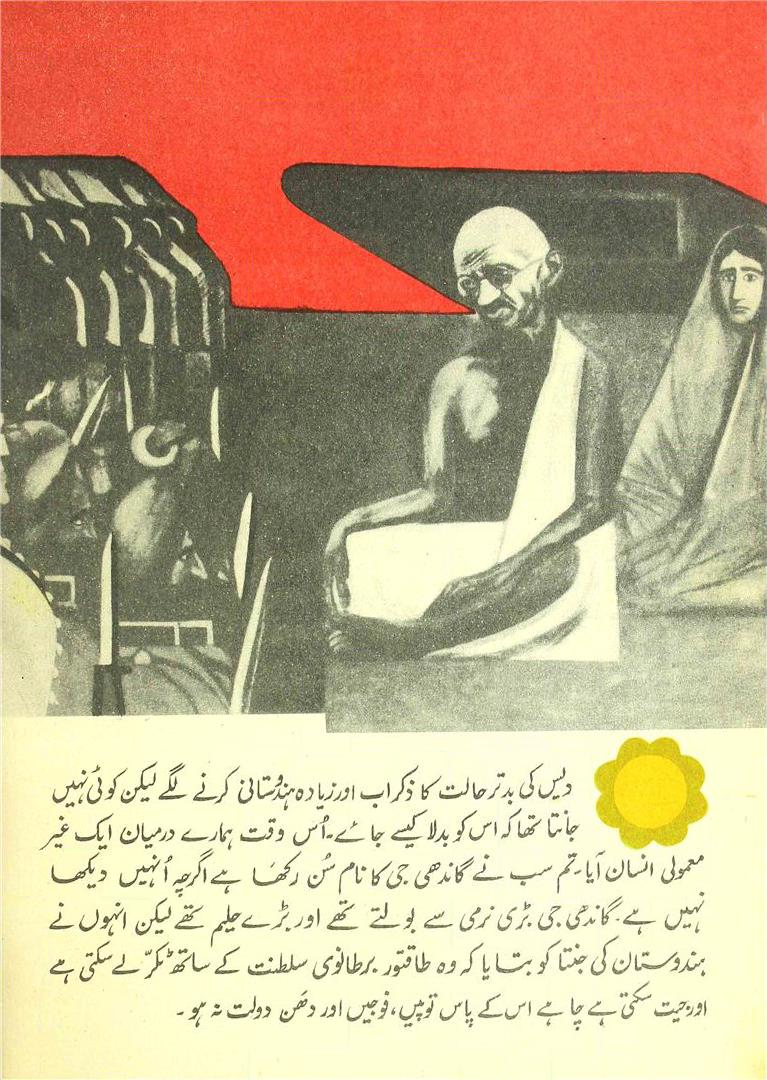 دیس کی بدتر حالت کا ذکر اب اور زیادہ ہندوستانی کرنے لگے لیکن کوئی نہیں
جانتا تھا کہ اس کو بدلا کیسے جائے۔ اُس وقت ہمارے درمیان ایک غیر
معمولی انسان آیا۔ تم سب نے گاندھی جی کا نام سُن رکھا ہے اگرچہ اُنہیں دیکھا
نہیں ہے۔ گاندھی جی بڑی نرمی سے بولتے تھے اور بڑے حلیم تھے لیکن انہوں نے
ہندوستان کی جنتا کو بتایا کہ وہ طاقتور برطانوی سلطنت کے ساتھ ٹکّر لے سکتی ہے
اور جیت سکتی ہے چاہے اس کے پاس توپیں، فوجیں اور دھن دولت نہ ہو۔